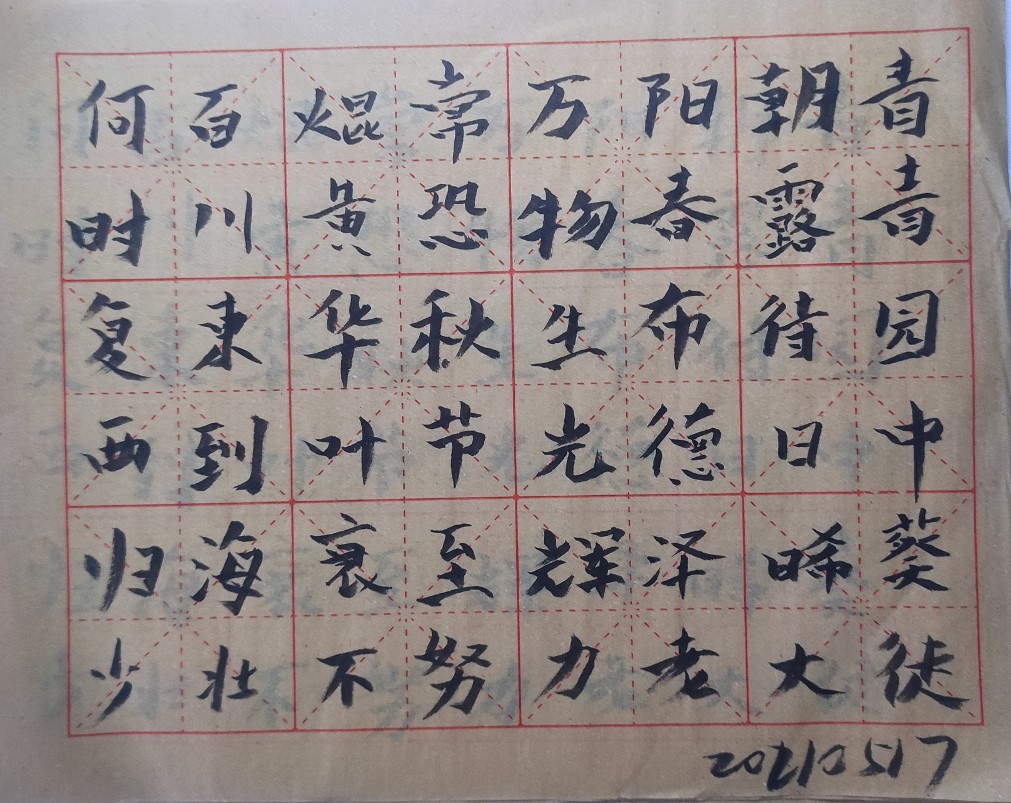 青青园中葵
朝露待日晞
阳春布德泽
万物生光辉
常恐秋节至
焜黄华叶衰
百川東到海
何时复西归
少壮不努力老大徒
20210517